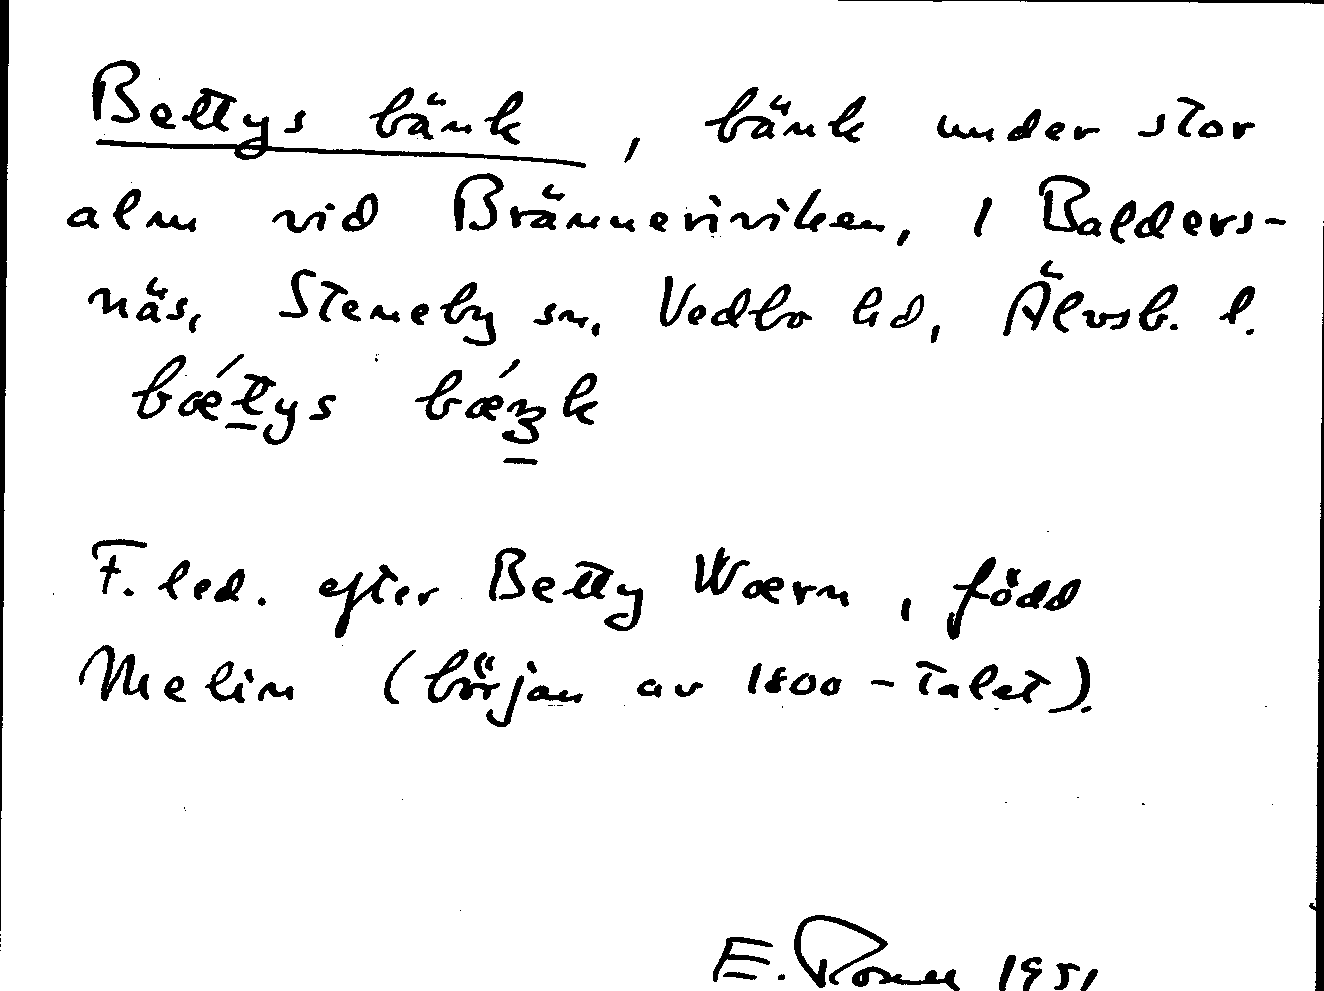 Bettys bänk, bänk under stor
alm vid Bränneriviken, 1 Balders-
näs, Steneby sn, Vedbo hd, Älvsb. l.
bǽt̲ys bǽŋ̲k
F. led. efter Betty Wærn, född
Melin (början av 1800-talet).
E. 1951